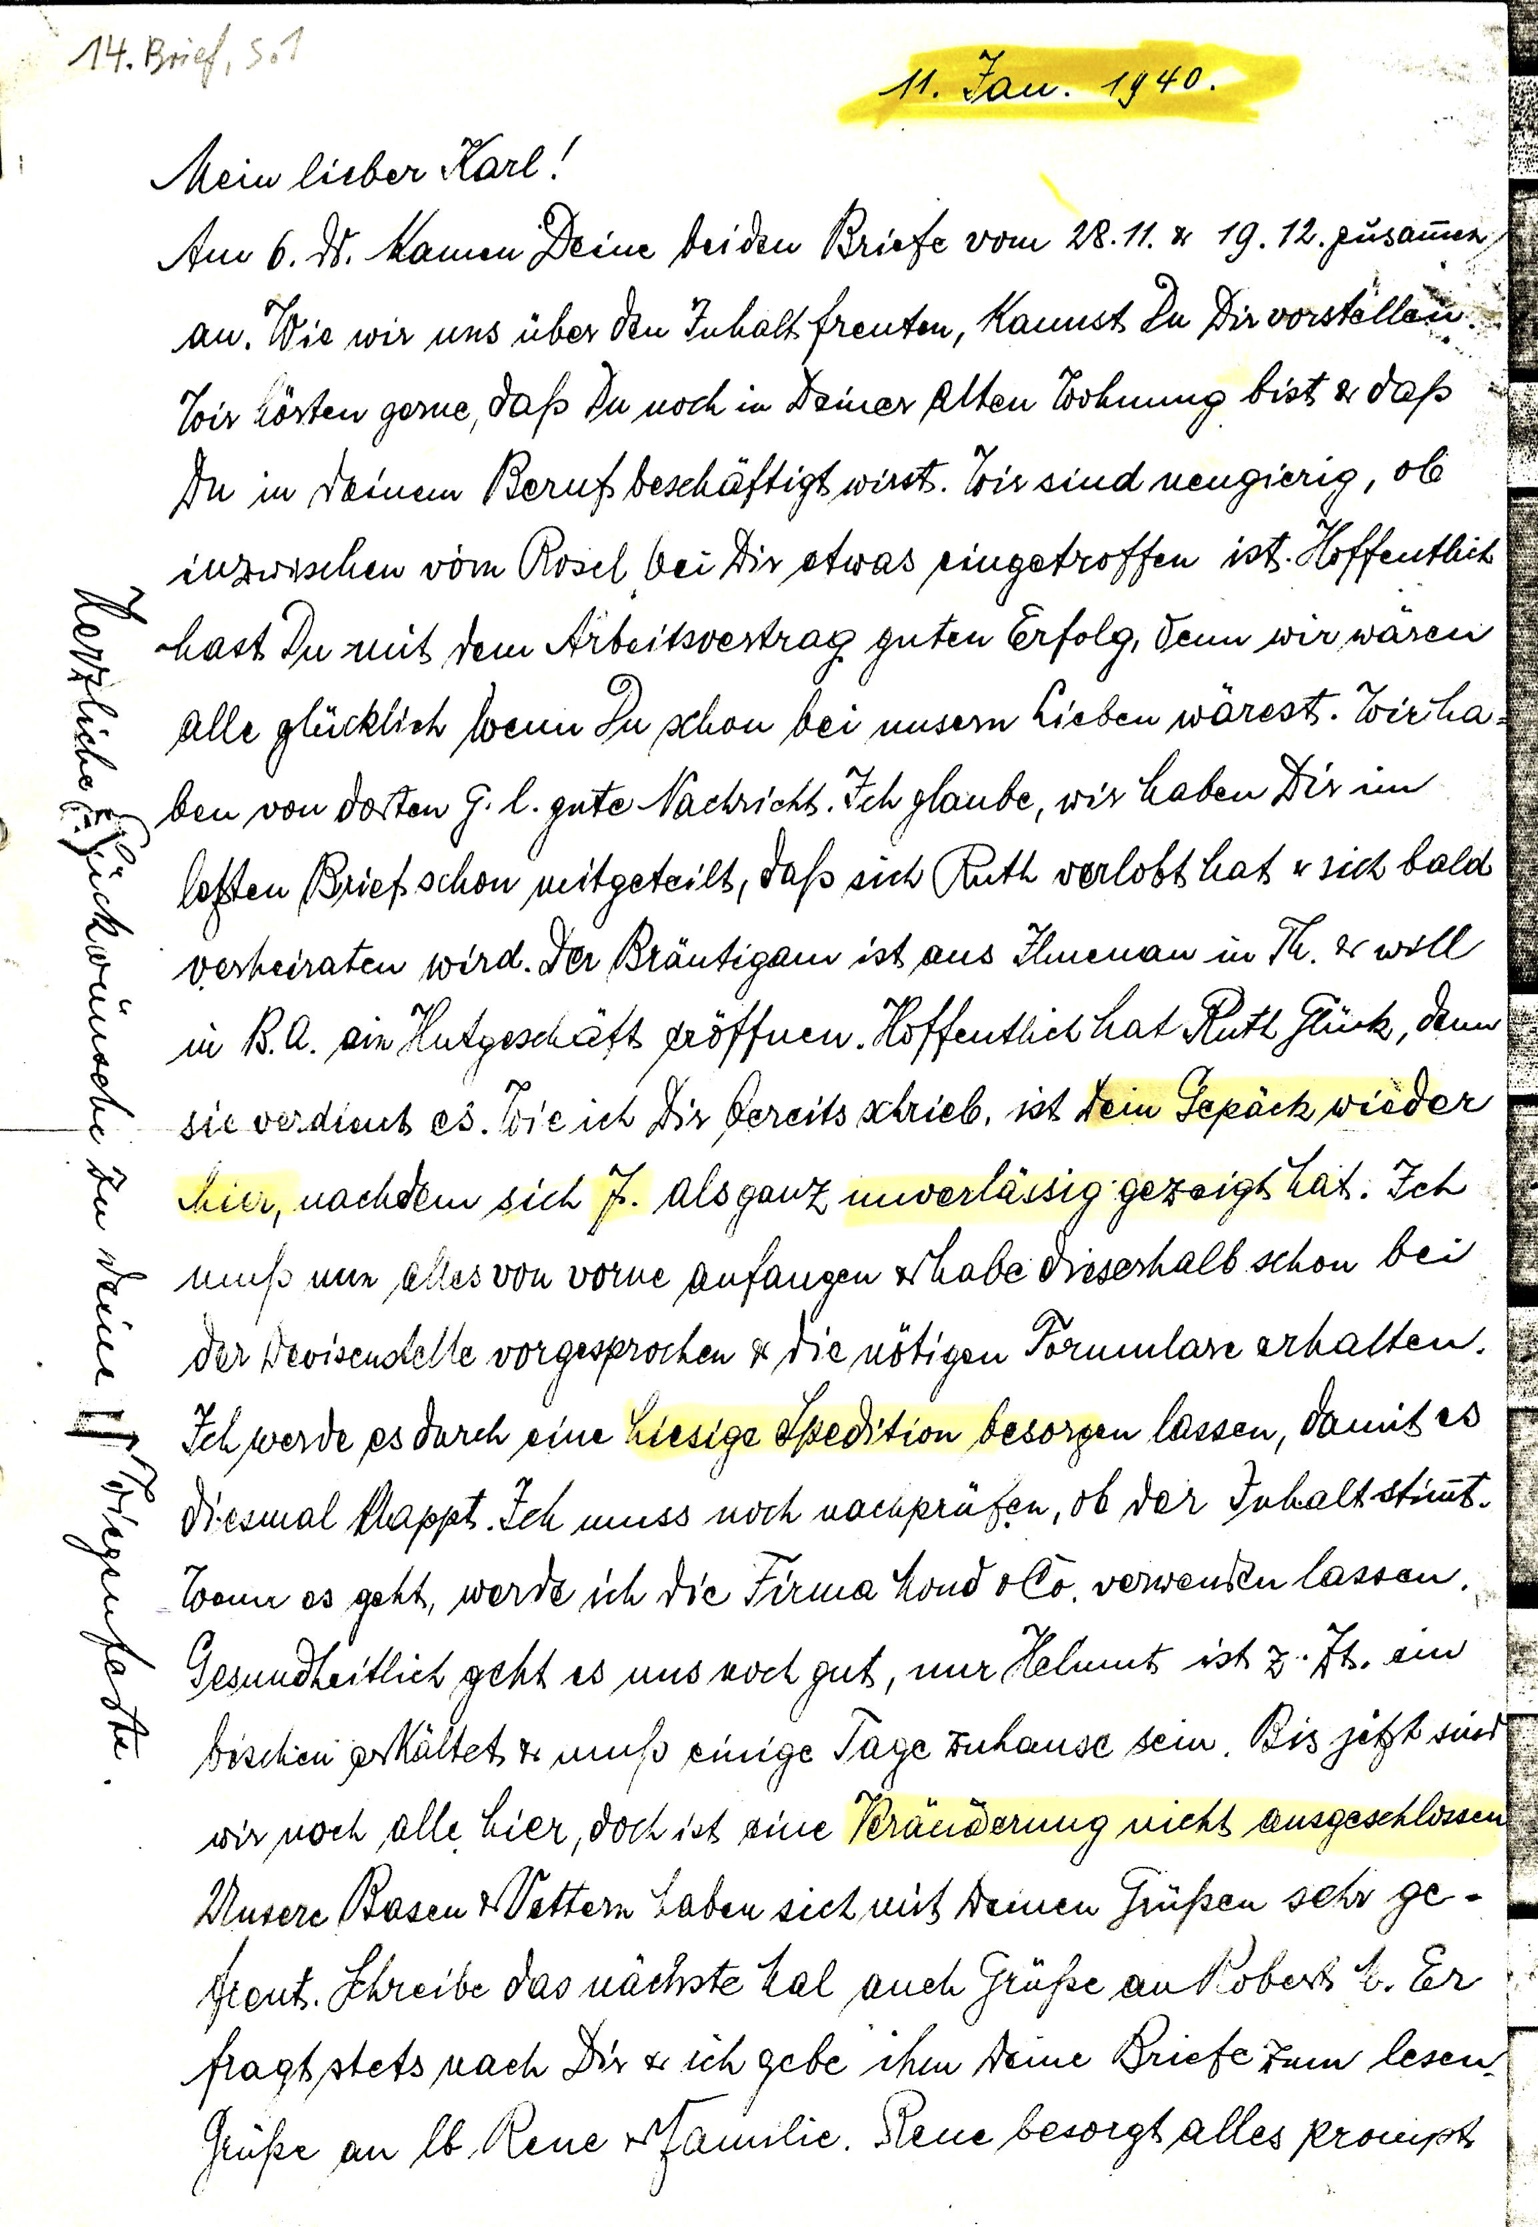 14. Brief, S. 1
11. Jan. 1940.
Mein lieber Karl!
Am 6. ds. kamen Deine beiden Briefe vom 28.11. & 19.12. zusam̅en
an. Wie wir uns über den Inhalt freuten, kannst Du Dir vorstellen.
Wir hörten gerne, daß Du noch in Deiner alten Wohnung bist & daß
Du in Deinem Beruf beschäftigt wirst. Wir sind neugierig, ob
inzwischen vom Rosel bei Dir etwas eingetroffen ist. Hoffentlich
hast Du mit dem Arbeitsvertrag guten Erfolg, denn wir wären
alle glücklich wenn Du schon bei unsern Lieben wärest. Wir ha=
ben von dorten G. l. gute Nachricht. Ich glaube, wir haben Dir im
letzten Brief schon mitgeteilt, daß sich Ruth verlobt hat & sich bald
verheiraten wird. Der Bräutigam ist aus Ilmenau in Th. & will
in B.A. ein Hutgeschäft eröffnen. Hoffentlich hat Ruth Glück, denn
sie verdient es. Wie ich Dir bereits schrieb, ist Dein Gepäck wieder
hier, nachdem sich J. als ganz unverlässig gezeigt hat. Ich
muß nun alles von vorne anfangen & habe dieserhalb schon bei
der Devisenstelle vorgesprochen & die nötigen Formulare erhalten.
Ich werde es durch eine hiesige Spedition besorgen lassen, damit es
diesmal klappt. Ich muss noch nachprüfen, ob der Inhalt stim̅t.
Wenn es geht, werde ich die Firma & Co. verwenden lassen.
Gesundheitlich geht es uns noch gut, nur Helmut ist z. Zt. ein
bischen erkältet & muß einige Tage zuhause sein. Bis jetzt sind
wir noch alle hier, doch ist eine Veränderung nicht ausgeschlossen
Unsere Basen & Vettern haben sich mit Deinen Grüßen sehr ge-
freut. Schreibe das nächste Mal auch Grüße an Robert Er
fragt stets nach Dir & ich gebe ihm Deine Briefe zum lesen.
Grüße an lb. Rene & Familie. Rene besorgt alles prompt
Herzliche Glückwünsche zu Deine Wiegenfeste.